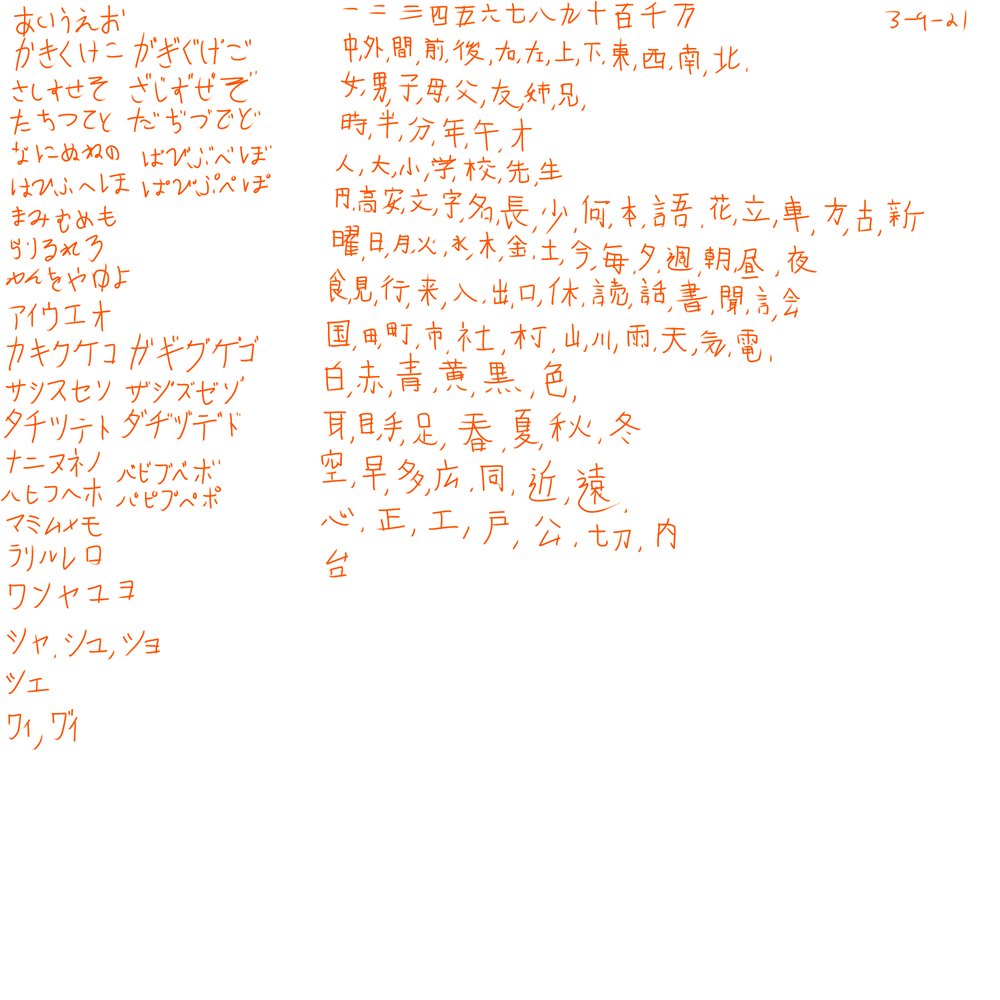 あいうえお
かきくけこ がぎぐげご
さしすせそ ざじずぜぞ
たちつてと だぢづでど
なにぬねの ばびぶべぼ
はひふへほ ぱぴぷぺぽ
まみむめも
らりるれろ
わんをやゆよ
アイウエオ
カキクケコ ガギグゲゴ
サシスセソ ザジズゼゾ
タチツテト ダヂヅデド
ナニヌネノ バビブベボ
ハヒフヘホ パピプペポ
マミムメモ
ラリルレロ
ワンヤユヨ
シャ,シュ,ショ
シェ
ウィ,ヴィ
一二三四五六七八九十百千万
中,外,間,前,後,右,左,上,下,東,西,南,北,
女,男,子,母,父,友,姉,兄,
時,半,分,年,午,才
人,大,小,学,校,先,生
円,高,安,文,字,名,長,少,何,本,語,花,立,車,方,古,新
曜,日,月,火,水,木,金,土,今,毎,夕,週,朝,昼,夜
食,見,行,来,入,出,口,休,読,話,書,聞,言,会
国,田,町,市,社,村,山,川,雨,天,気,電,
白,赤,青,黄,黒,色,
耳,目,手,足,春,夏,秋,冬
空,早,多,広,同,近,遠,
心,正,工,戸,公,切,内
台
3-9-21